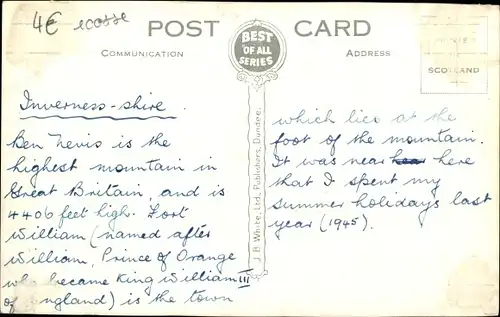 4€ ecosse
POST CARD
COMMUNICATION
ADDRESS
BEST
OF ALL
SERIES
SCOTLAND
J.B. White, Ltd., Publishers, Dundee.
Inverness-shire.
Ben Nevis is the
highest mountain in
Great Britain, and is
4406 feet high. Fort
William (named after
William, Prince of Orange
who became King William III
of England) is the town
which lies at the
foot of the mountain.
It was near here
that I spent my
summer holidays last
year (1945).